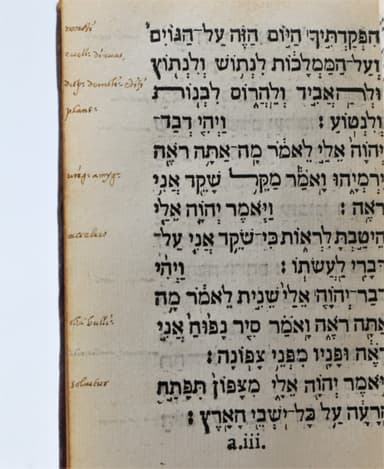 הִפְקַדְתִּיךָ הַיּוֹם הַזֶּה עַל־הַגּוֹיִם
וְעַל־הַמַּמְלָכוֹת לִנְתוֹשׁ וְלִנְתוֹץ
וּלְהַאֲבִיד וְלַהֲרוֹס לִבְנוֹת
וְלִנְטוֹעַ׃ וַיְהִי דְבַר־
יְהוָה אֵלַי לֵאמֹר מָה־אַתָּה רֹאֶה
יִרְמְיָהוּ וָאֹמַר מַקֵּל שָׁקֵד אֲנִי
רֹאֶה׃ וַיֹּאמֶר יְהוָה אֵלַי
הֵיטַבְתָּ לִרְאוֹת כִּי־שֹׁקֵד אֲנִי עַל־
דְּבָרִי לַעֲשֹׂתוֹ׃ וַיְהִי
דְבַר־יְהוָה אֵלַי שֵׁנִית לֵאמֹר מָה
אַתָּה רֹאֶה וָאֹמַר סִיר נָפוּחַ אֲנִי
רֹאֶה וּפָנָיו מִפְּנֵי צָפוֹנָה׃
וַיֹּאמֶר יְהוָה אֵלָי מִצָּפוֹן תִּפָּתַח
הָרָעָה עַל כָּל־יֹשְׁבֵי הָאָרֶץ׃
a.iii.
soluetur